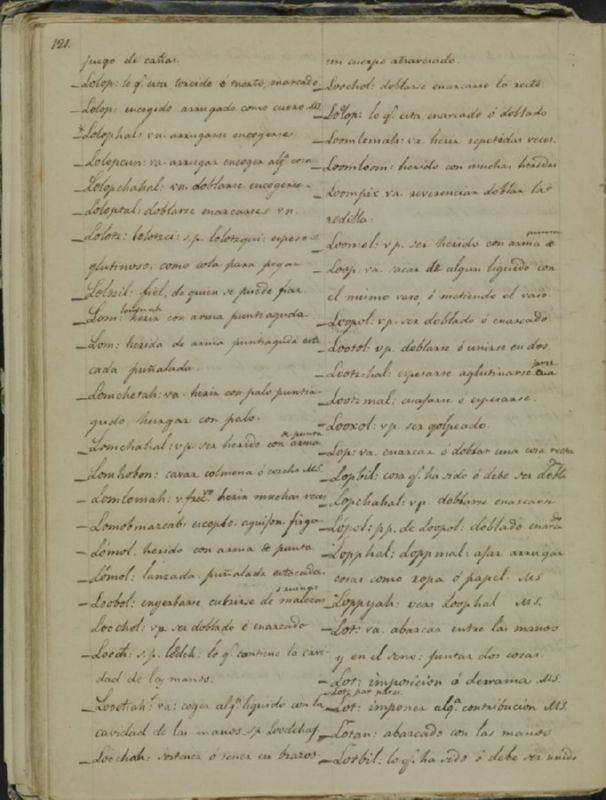 121.
juego de cañas.
Lolop: lo q.e esta torcido ó tuerto, enarcado
Lolop: encogido arrugado como cuero MS
Lolophal: vn. arrugarse encogerse.
Lolopcun: va. arrugar encoger alg.a cosa
Lolopchahal: vn. doblarse encogerse.
Loloptal: doblarse enarcarse vn.
Lolotz: lolotzci: s.p. lolotzqui: espeso
glutinoso, como cola para pegar
Lolzil: fiel, de quien se puede fiar.
Lom: lomah herir con arma punteaguda
Lom: herida de arma puntiaguda esto
cada puñalada.
Lomchetah: va. herir con palo puntia-
gudo, hurgar con palo.
Lomchahal: vp. ser herido con arma de punta
Lomhobon: cavar colmena ó corcho MS.
Lomlomah: v. frec.o herir muchas veces
Lomobmazcab: escoplo, aguijon, fisga
Lómol. herido con arma de punta
Lómol: lanzada, puñalada estocada.
Loobol: enyerbarse cubrirse de malezas
Loochol: vp. ser doblado ó enarcado
Looch: s.p. lodch: lo q.e contiene la cavi-
dad de las manos.
Loochah: va: coger alg.o liquido con la
cavidad de las manos. s.p. Loodchah
Loochah: sostener ó tener en brazos
un cuerpo atravesado.
Loochol: doblarse enarcarse lo recto
Lolop: lo q.e esta enarcado ó doblado
Loomlomah: va. herir repetidas veces.
Loomloom: herido con muchas heridas
Loompix va. reverenciar doblar las
rodilla.
Loomol: vp. ser herido con arma de punta
Loop: va. sacar de algun liquido con
el mismo vaso, ó metiendo el vaso
Loopol: vp. ser doblado ó enarcado
Lootol: vp. doblarse ó unirse en dos
Lootzhal: espesarse aglutinarse
Lootzmal: cuajarse ó espesarse.
Looxol: vp. ser golpeado.
Lop: va. enarcar ó doblar una cosa recta
Lopbil: cosa q.e ha sido ó debe ser dobla
Lopchahal: vp. doblarse enarcarse
Lópol: pp. de Loopol: doblado enarcdo
Lopphal: loppmal: ajar arrugar
cosas como ropa ó papel. MS
Loppyah: veas loophal MS.
Lot: va. abarcar entre las manos
y en el seno: juntar dos cosas.
Lot: imposicion ó derrama MS.
Lot: imponer alg.a contribucion MS.
Lotan: abarcado con las manos
Lotbil: lo q.e ha sido ó debe ser unido